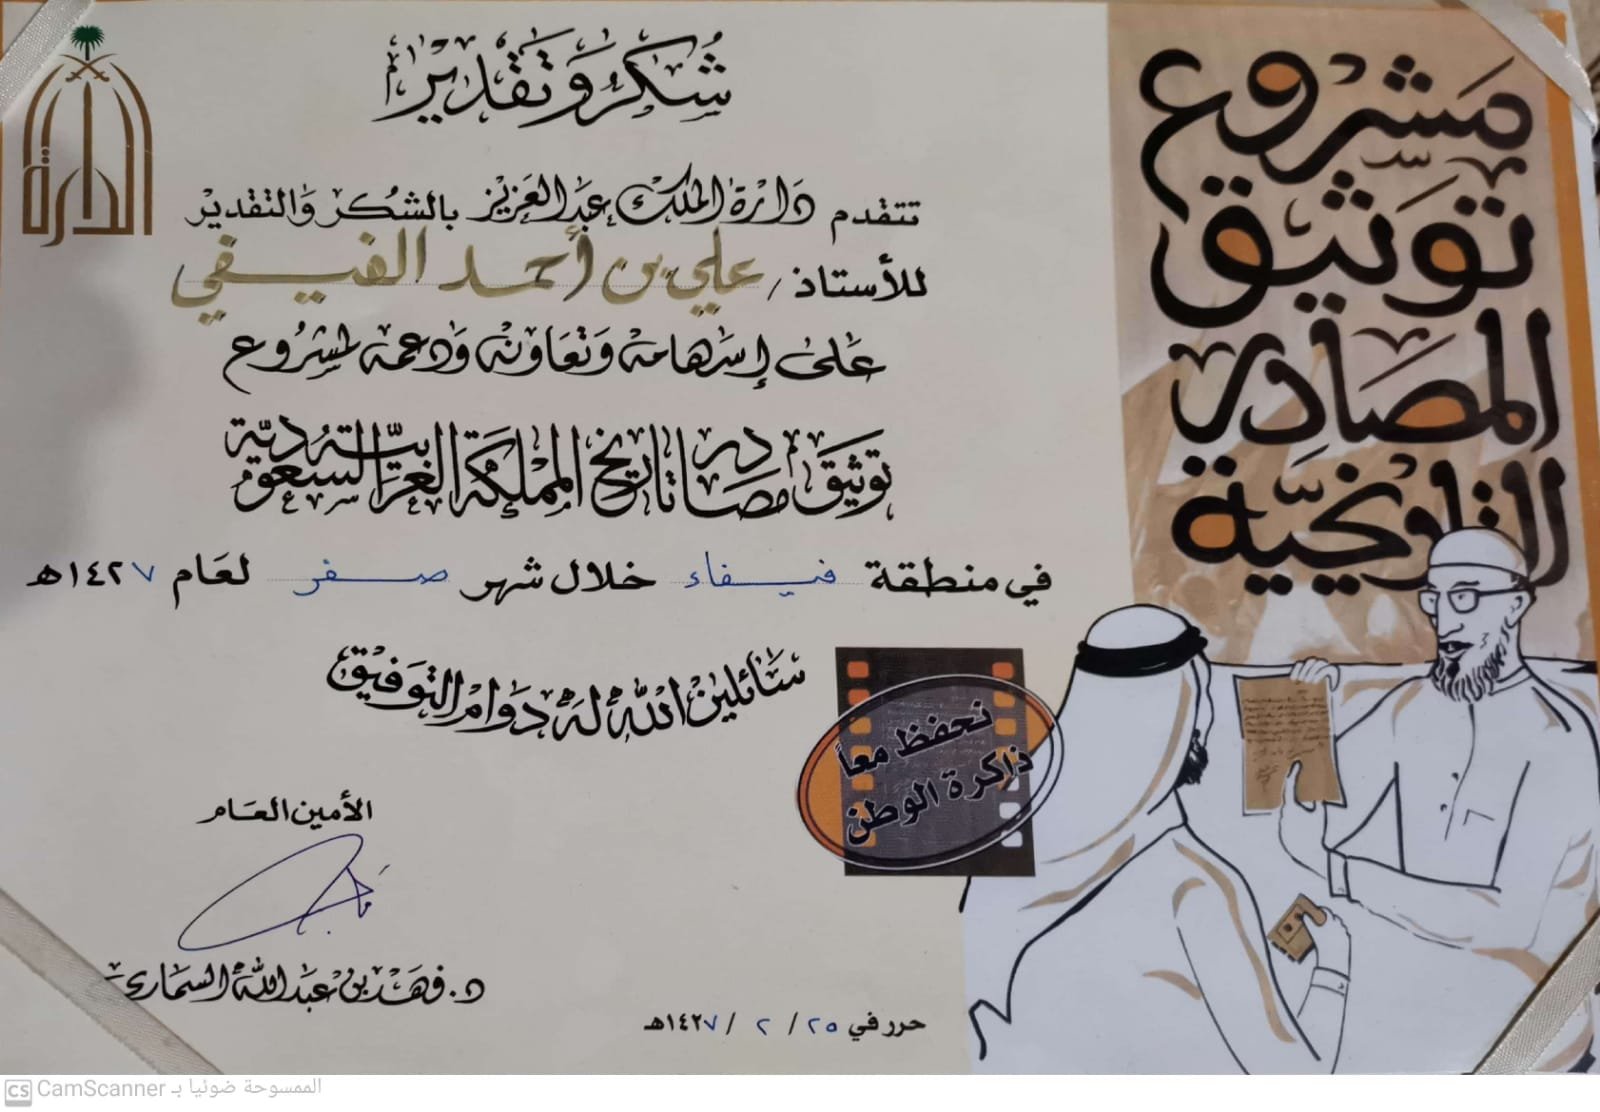 الدارة
شكر وتقدير
تتقدم دارة الملك عبدالعزيز بالشكر والتقدير
للأستاذ / علي بن أحمد الفيفي
على إسهامه وتعاونه ودعمه لمشروع
توثيق مصادر تاريخ المملكة العربية السعودية
في منطقة فيفاء خلال شهر صفر لعام ١٤٢٧هـ
سائلين الله له دوام التوفيق
الأمين العام
د. فهد بن عبدالله السماري
حرر في ٢٥ / ٢ / ١٤٢٧هـ
مشروع
توثيق
المصادر
التاريخية
نحفظ معاً
ذاكرة الوطن
CS CamScanner الممسوحة ضوئيا بـ